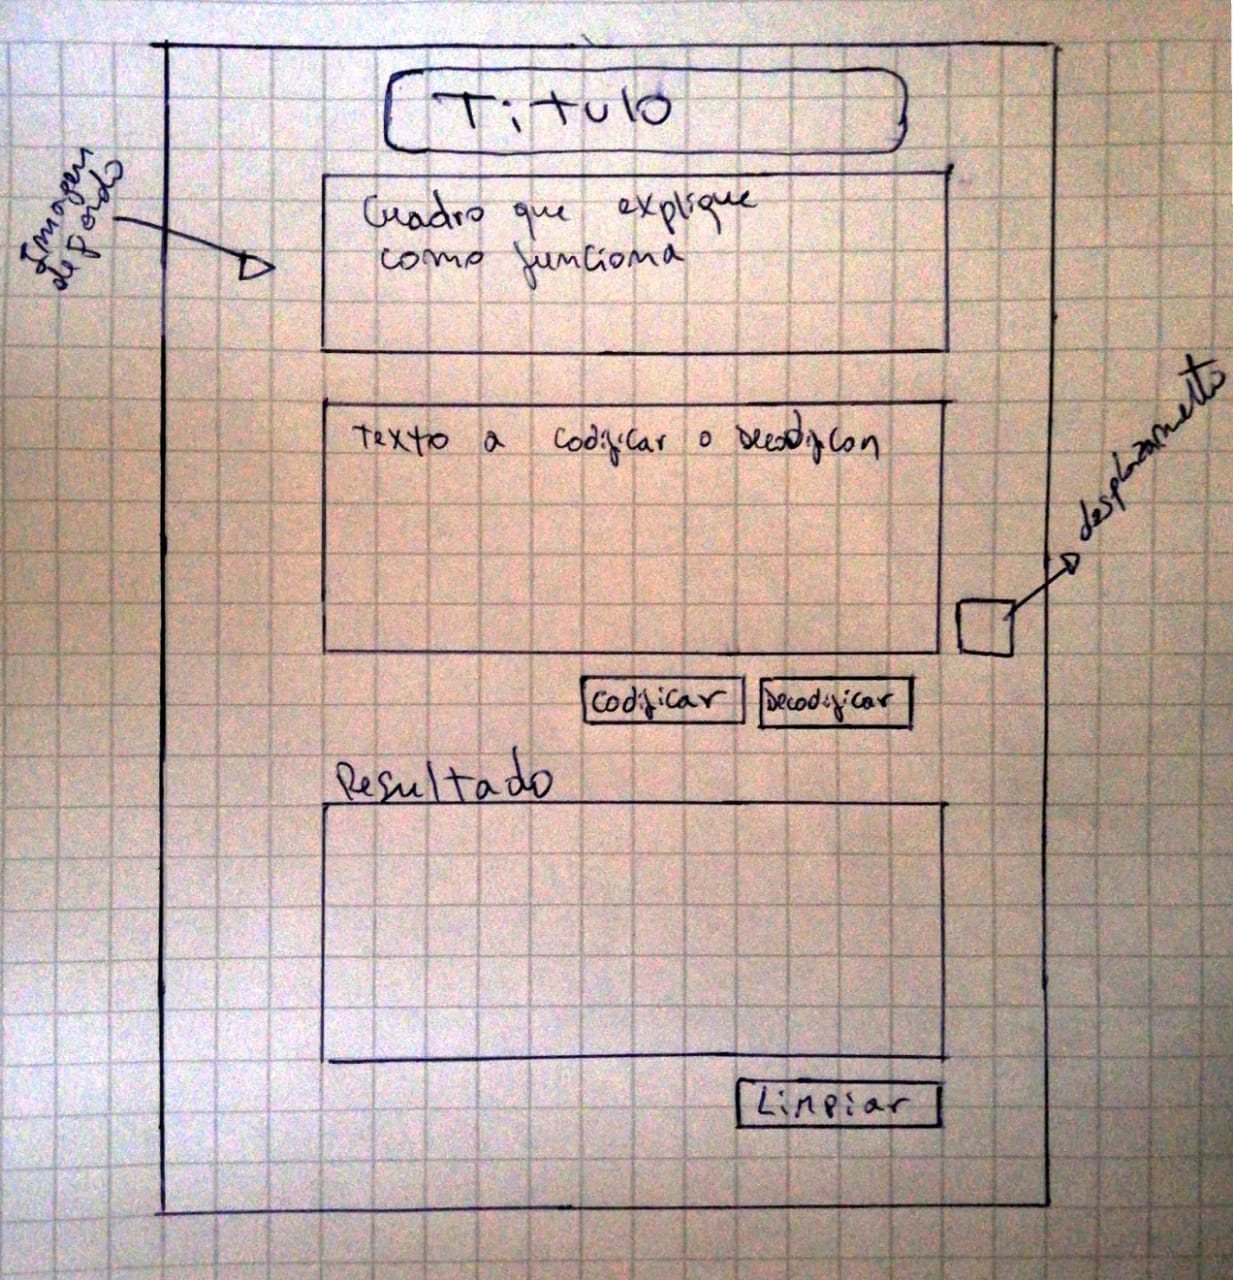 Titulo
Imagen
de fondo
Cuadro que explique
como funciona
Texto a codificar o Decodificar
desplazamiento
Codificar
Decodificar
Resultado
Limpiar